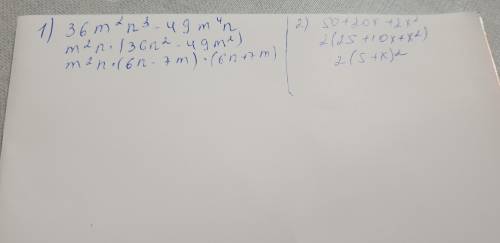 1) 36m²n³-49m⁴n
m²n·(36n²-49m²)
m²n·(6n-7m)·(6n+7m)
2) 50+20x+2x²
2(25+10x+x²)
2(5+x)²